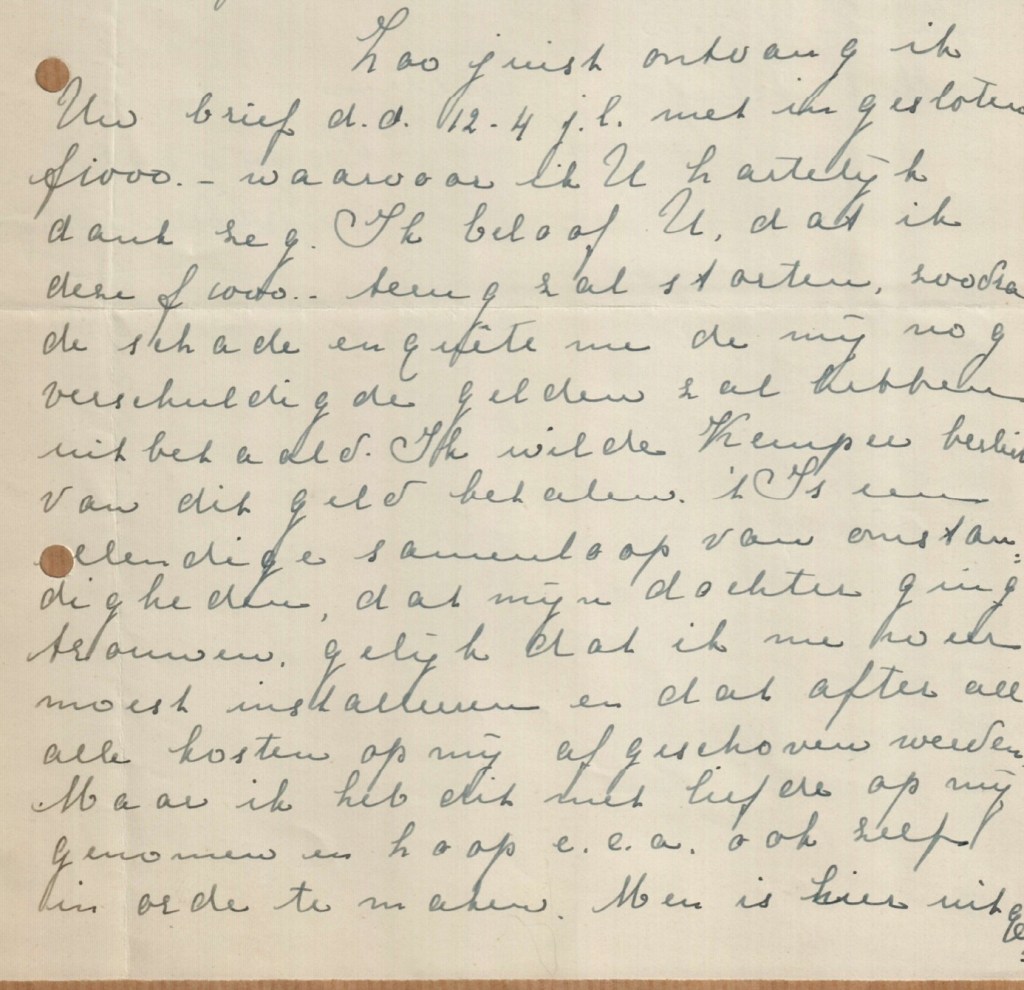 Zoo juist ontvang ik
Uw brief d.d. 12-4 j.l. met ingesloten
f 1000.- waarvoor ik U hartelijk
dank zeg. Ik beloof U, dat ik
deze f 1000.- terug zal storten, zoodra
de schade enquête me de mij nog
verschuldigde gelden zal hebben
uitbetaald. Ik wilde Kemper beslist
van dit geld betalen. 't Is een
ellendige samenloop van omstan=
digheden, dat mijn dochter ging
trouwen, gelijk dat ik me weer
moest installeeren en dat after all
alle kosten op mij afgeschoven werden.
Maar ik heb dit met liefde op mij
genomen en hoop e.e.a. ook zelf
in orde te maken. Men is hier uitge